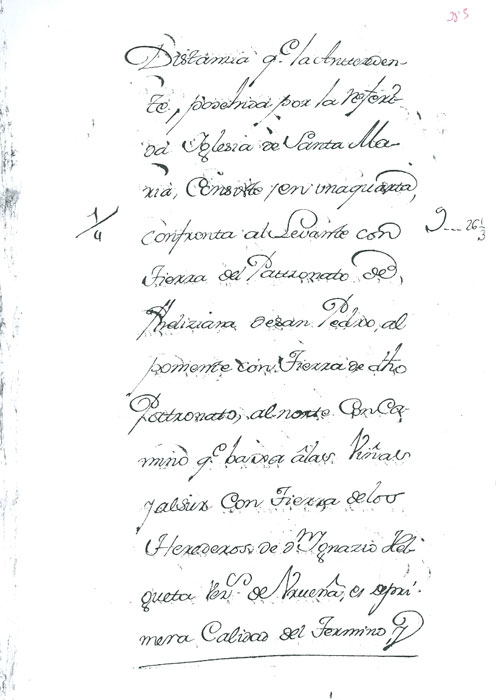 Distancia q.e la Antezeden-
te, posehida por la referi-
da Yglesia de Santa Ma-
ria, Consiste en una quarta,
1/4
confronta al Levante con
9--- 26 1/3
Tierra del Patronato de
Andiziana de San Pedro, al
poniente con Tierra de dho
Patronato, al norte Con Ca-
mino q.e baxa álas Viñas
y alsur Con Tierra delos
Herederos de d.n Ygnazio
gueta Vez.o de Urueña, es depri-
mera Calidad del Termino, y